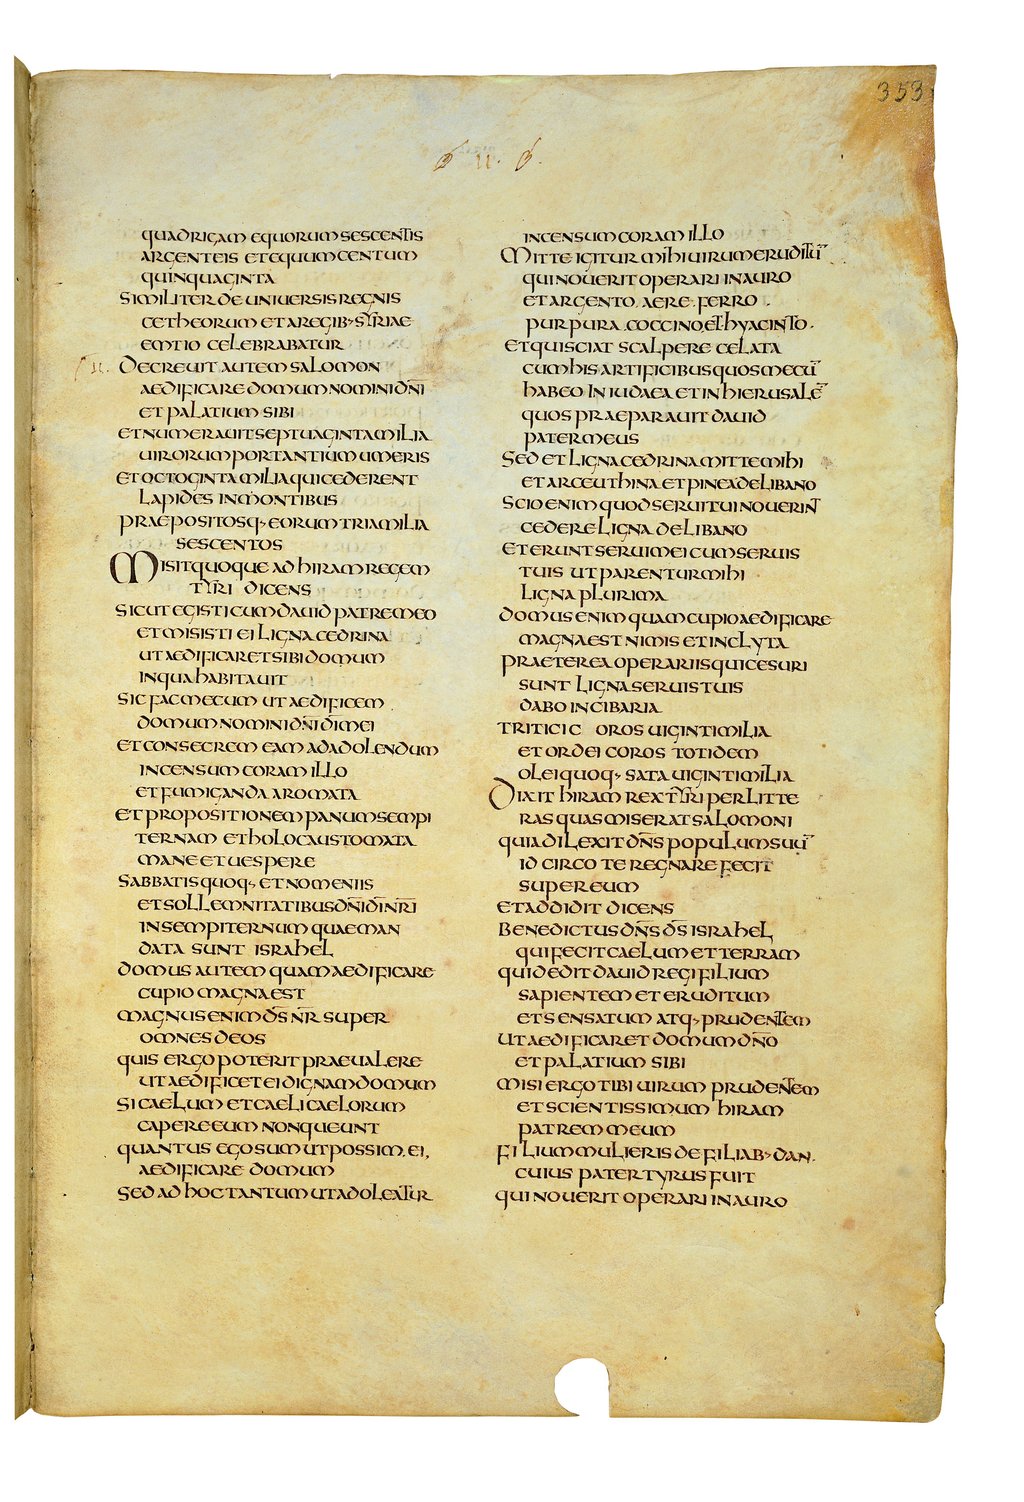 353
QUADRIGAM EQUORUM SESCENTIS
ARGENTEIS ET EQUUM CENTUM
QUINQUAGINTA
SIMILITER DE UNIVERSIS REGNIS
CETHEORUM ET A REGIB· SYRIAE
EMTIO CELEBRABATUR
II. DECREUIT AUTEM SALOMON
AEDIFICARE DOMUM NOMINI DÑI
ET PALATIUM SIBI
ET NUMERAUIT SEPTUAGINTA MILIA
UIRORUM PORTANTIUM UMERIS
ET OCTOGINTA MILIA QUI CEDERENT
LAPIDES IN MONTIBUS
PRAEPOSITOSQ· EORUM TRIA MILIA
SESCENTOS
MISIT QUOQUE AD HIRAM REGEM
TYRI DICENS
SICUT EGISTI CUM DAUID PATRE MEO
ET MISISTI EI LIGNA CEDRINA
UT AEDIFICARET SIBI DOMUM
IN QUA HABITAUIT
SIC FAC MECUM UT AEDIFICEM
DOMUM NOMINI DÑI DĪ MEI
ET CONSECREM EAM AD ADOLENDUM
INCENSUM CORAM ILLO
ET FUMIGANDA AROMATA
ET PROPOSITIONEM PANUM SEMPI
TERNAM ET HOLOCAUSTOMATA
MANE ET UESPERE
SABBATIS QUOQ· ET NOMENIIS
ET SOLLEMNITATIBUS DÑI DĪ NR̄I
IN SEMPITERNUM QUAE MAN
DATA SUNT ISRAHEL
DOMUS AUTEM QUAM AEDIFICARE
CUPIO MAGNA EST
MAGNUS ENIM DS̄ NR̄ SUPER
OMNES DEOS
QUIS ERGO POTERIT PRAEUALERE
UT AEDIFICET EI DIGNAM DOMUM
SI CAELUM ET CAELI CAELORUM
CAPERE EUM NON QUEUNT
QUANTUS EGO SUM UT POSSIM EI
AEDIFICARE DOMUM
SED AD HOC TANTUM UT ADOLEATUR
INCENSUM CORAM ILLO
MITTE IGITUR MIHI UIRUM ERUDITŪ
QUI NOUERIT OPERARI IN AURO
ET ARGENTO. AERE. FERRO.
PURPURA. COCCINO, ET HYACINTO.
ET QUI SCIAT SCALPERE CELATA
CUM HIS ARTIFICIBUS QUOS MECŪ
HABEO IN IUDAEA ET IN HIERUSALĒ
QUOS PRAEPARAUIT DAUID
PATER MEUS
SED ET LIGNA CEDRINA MITTE MIHI
ET ARCEUTHINA ET PINEA DE LIBANO
SCIO ENIM QUOD SERUI TUI NOUERINT
CEDERE LIGNA DE LIBANO
ET ERUNT SERUI MEI CUM SERUIS
TUIS UT PARENTUR MIHI
LIGNA PLURIMA
DOMUS ENIM QUAM CUPIO AEDIFICARE
MAGNA EST NIMIS ET INCLYTA
PRAETEREA OPERARIIS QUI CESURI
SUNT LIGNA SERUIS TUIS
DABO IN CIBARIA
TRITICI C OROS UIGINTI MILIA
ET ORDEI COROS TOTIDEM
OLEI QUOQ· SATA UIGINTI MILIA
DIXIT HIRAM REX TYRI PER LITTE
RAS QUAS MISERAT SALOMONI
QUIA DILEXIT DÑS POPULUM SUŪ
IDCIRCO TE REGNARE FECIT
SUPER EUM
ET ADDIDIT DICENS
BENEDICTUS DÑS DS̄ ISRAHEL
QUI FECIT CAELUM ET TERRAM
QUI DEDIT DAUID REGI FILIUM
SAPIENTEM ET ERUDITUM
ET SENSATUM ATQ· PRUDENTEM
UT AEDIFICARET DOMUM DÑO
ET PALATIUM SIBI
MISI ERGO TIBI UIRUM PRUDENTEM
ET SCIENTISSIMUM HIRAM
PATREM MEUM
FILIUM MULIERIS DE FILIAB· DAN.
CUIUS PATER TYRUS FUIT
QUI NOUERIT OPERARI IN AURO